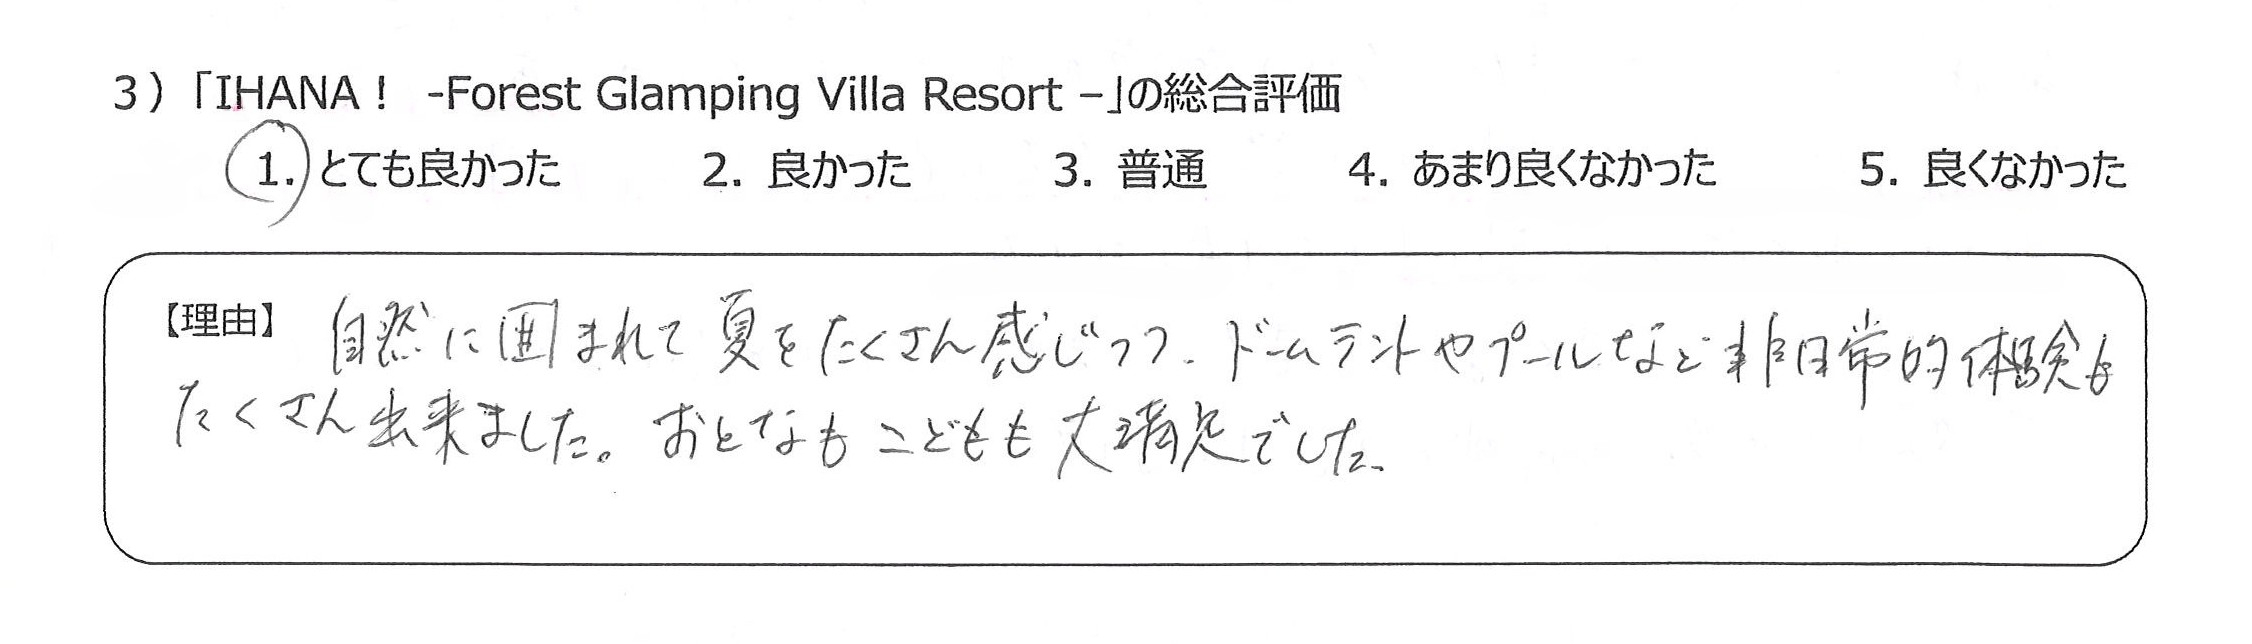 3）「IHANA！ -Forest Glamping Villa Resort –」の総合評価
1. とても良かった 2. 良かった 3. 普通 4. あまり良くなかった 5. 良くなかった
【理由】 自然に囲まれて夏をたくさん感じつつ、ドームテントやプールなど非日常的体験も
たくさん出来ました。おとなもこどもも大満足でした。